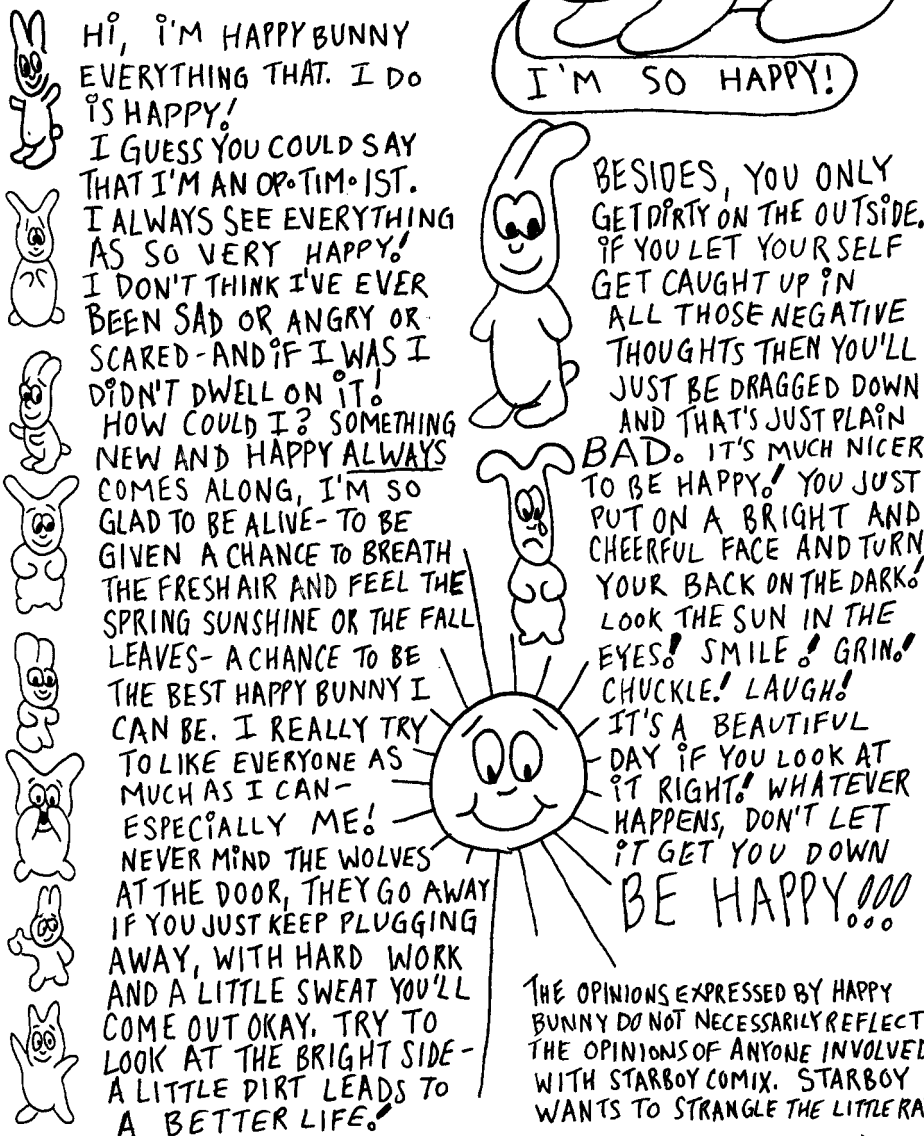 Hi, i'M HAPPY BUNNY
EVERYTHING THAT. I DO
iS HAPPY!
I GUESS YOU COULD SAY
THAT I'M AN OP•TIM•IST.
I ALWAYS SEE EVERYTHING
AS SO VERY HAPPY!
I DON'T THINK I'VE EVER
BEEN SAD OR ANGRY OR
SCARED-AND iF I WAS I
DiDN'T DWELL ON iT!
HOW COULD I? SOMETHING
NEW AND HAPPY ALWAYS
COMES ALONG, I'M SO
GLAD TO BE ALIVE- TO BE
GIVEN A CHANCE TO BREATH
THE FRESH AIR AND FEEL THE
SPRING SUNSHINE OR THE FALL
LEAVES- A CHANCE TO BE
THE BEST HAPPY BUNNY I
CAN BE. I REALLY TRY
TO LIKE EVERYONE AS
MUCH AS I CAN-
ESPECiALLY ME!
NEVER MiND THE WOLVES
AT THE DOOR, THEY GO AWAY
IF YOU JUST KEEP PLUGGING
AWAY, WITH HARD WORK
AND A LITTLE SWEAT YOU'LL
COME OUT OKAY. TRY TO
LOOK AT THE BRIGHT SIDE-
A LITTLE DIRT LEADS TO
A BETTER LIFE!
I'M SO HAPPY!
BESIDES, YOU ONLY
GET DiRTY ON THE OUTSiDE.
iF YOU LET YOUR SELF
GET CAUGHT UP iN
ALL THOSE NEGATIVE
THOUGHTS THEN YOU'LL
JUST BE DRAGGED DOWN
AND THAT'S JUST PLAiN
BAD. IT'S MUCH NICER
TO BE HAPPY! YOU JUST
PUT ON A BRIGHT AND
CHEERFUL FACE AND TURN
YOUR BACK ON THE DARK!
LOOK THE SUN IN THE
EYES! SMILE! GRIN!
CHUCKLE! LAUGH!
IT'S A BEAUTIFUL
DAY iF YOU LOOK AT
iT RIGHT! WHATEVER
HAPPENS, DON'T LET
iT GET YOU DOWN
BE HAPPY!!!
THE OPINIONS EXPRESSED BY HAPPY
BUNNY DO NOT NECESSARILY REFLECT
THE OPINIONS OF ANYONE INVOLVED
WITH STARBOY COMIX. STARBOY
WANTS TO STRANGLE THE LITTLE RA